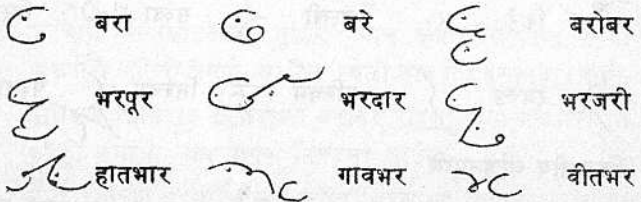 बरा बरे बरोबर
भरपूर भरदार भरजरी
हातभार गावभर वीतभर